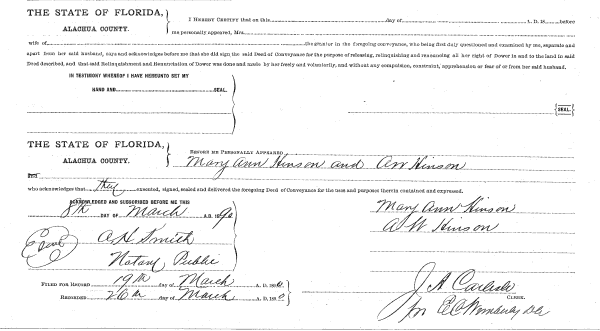 THE STATE OF FLORIDA,
ALACHUA COUNTY.
I HEREBY CERTIFY that on this day of A. D. 18 before
me personally appeared, Mrs.
wife of the grantor in the foregoing conveyance, who being first duly questioned and examined by me, separate and
apart from her said husband, says and acknowledges before me that she did sign the said Deed of Conveyance for the purpose of releasing, relinquishing and renouncing all her right of Dower in and to the land in said
Deed described, and that said Relinquishment and Renunciation of Dower was done and made by her freely and voluntarily, and without any compulsion, constraint, apprehension or fear of or from her said husband.
IN TESTIMONY WHEREOF I HAVE HEREUNTO SET MY
HAND AND SEAL.
SEAL.
THE STATE OF FLORIDA,
ALACHUA COUNTY.
BEFORE ME PERSONALLY APPEARED
Mary Ann Hinson and AW Hinson
and
who acknowledges that they executed, signed, sealed and delivered the foregoing Deed of Conveyance for the uses and purposes therein contained and expressed.
ACKNOWLEDGED AND SUBSCRIBED BEFORE ME THIS
8th DAY OF March A.D. 1890
Mary Ann Hinson
A W Hinson
Seal
A H Smith
Notary Public
FILED FOR RECORD 19th day of March A. D. 1890
RECORDED 26th day of March A. D. 1890
J A Carlisle
CLERK.